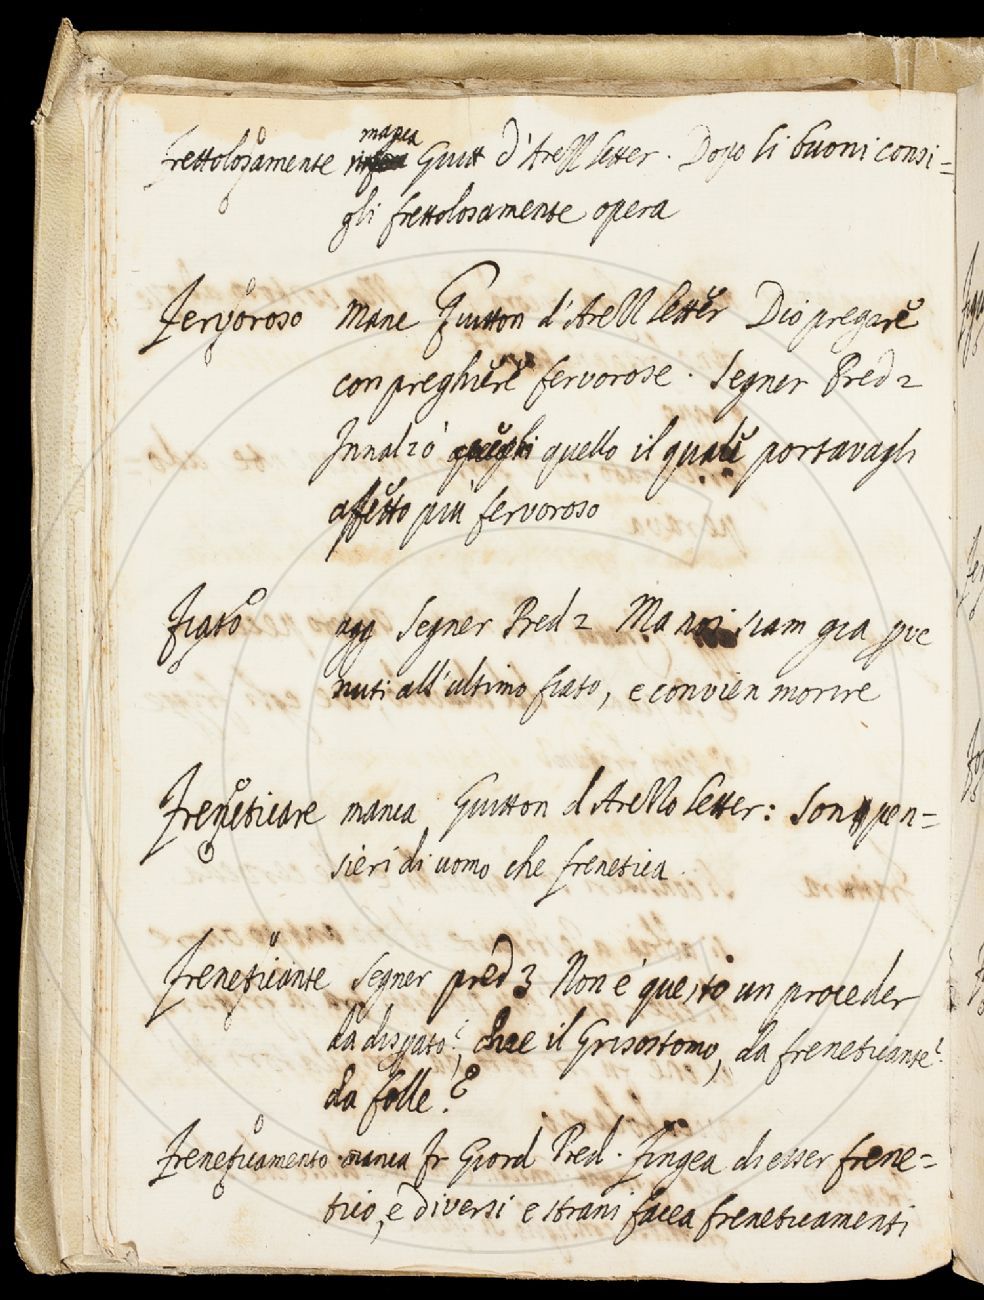 Frettolosamente manca Guitt d'Arezz letter. Dopo li buoni consi=
gli frettolosamente opera
Fervoroso Manc Guitton d'Arezz letter Dio pregare
con preghiere fervorose. Segner Pred 2
Innalzò quello il quale portavagli
affetto più fervoroso
Fiato agg Segner Pred 2 Ma noi siam gia pve
nuti all'ultimo fiato, e convien morire
Freneticare manca Guitton d Arezzo letter: Son pen=
sieri di uomo che frenetica
Freneticante Segner pred 3 Non é questo un proceder
da disperato? il Grisostomo, da freneticante?
da folle?
Freneticamento manca Fr Giord Pred. Fingea di esser frene=
tico, e diversi e strani facea freneticamenti